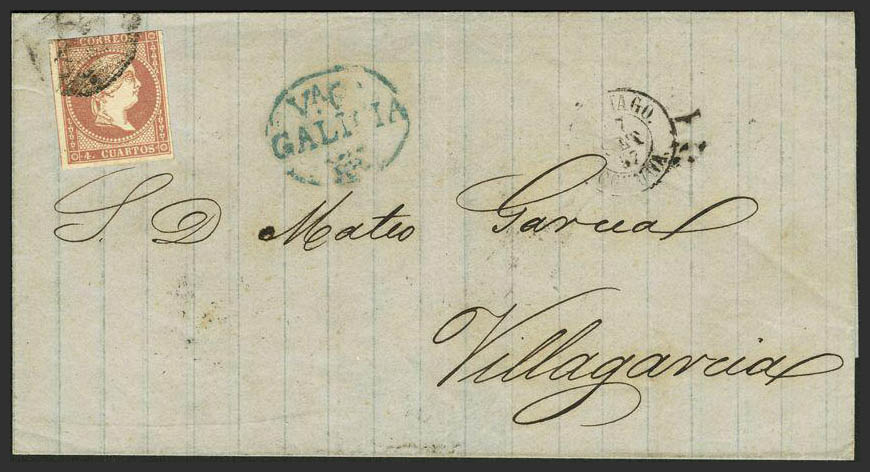 CORREOS
4. CUARTOS
GALICIA
7
S. D Mateo Garcia
Villagarcia